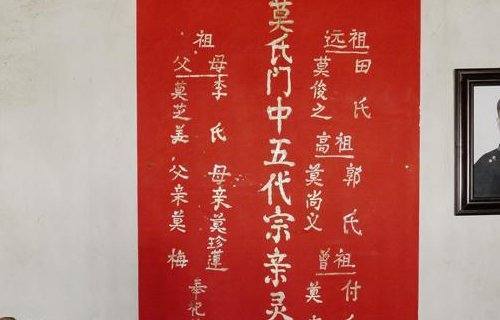 祖田氏 祖郭氏 祖付
远莫俊之 高莫尚义 曾莫
莫氏门中五代宗亲灵
祖
母李氏 母亲莫珍莲 奉祀
父莫芝美 父亲莫梅